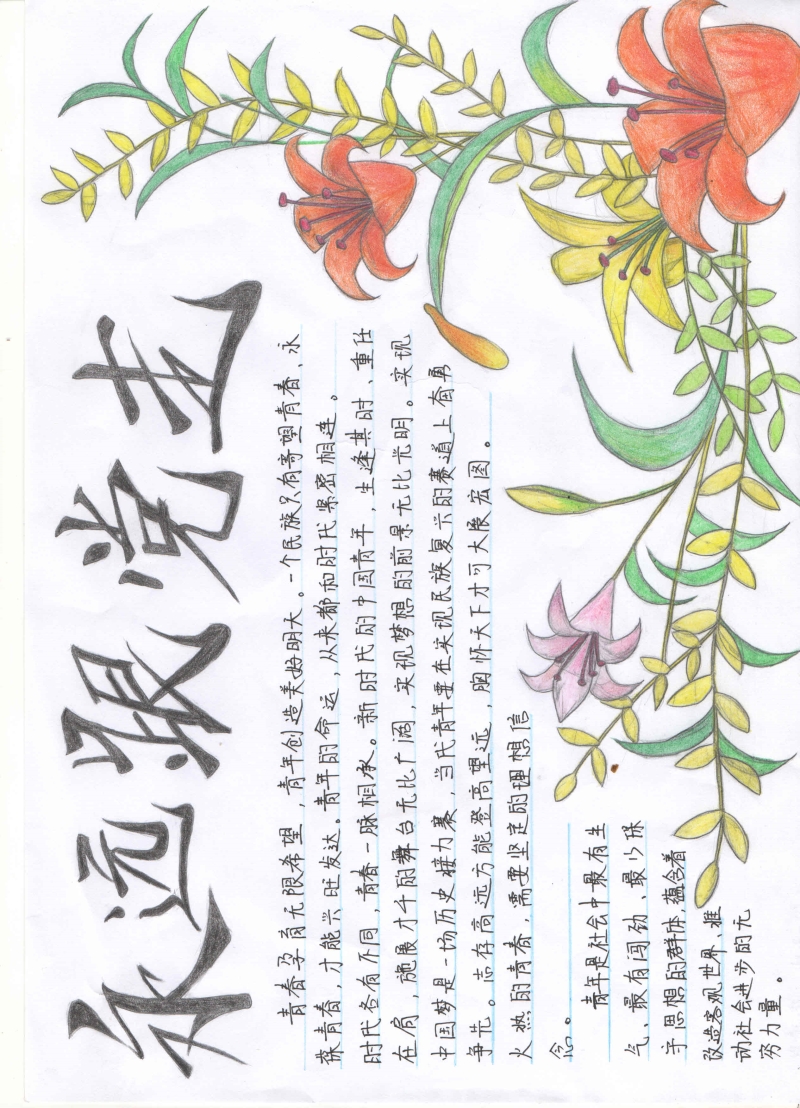 永远跟党走
青春孕育无限希望，青年创造美好明天。一个民族只有寄望青春、永
葆青春，才能兴旺发达。青年的命运，从来都和时代紧密相连。
时代各有不同，青春一脉相承。新时代的中国青年，生逢其时、重任
在肩，施展才干的舞台无比广阔，实现梦想的前景无比光明。实现
中国梦是一场历史接力赛，当代青年要在实现民族复兴的赛道上奋勇
争先。志存高远方能登高望远，胸怀天下才可大展宏图。
火热的青春，需要坚定的理想信
念。
青年是社会中最有生
气、最有闯劲、最少保
守思想的群体，蕴含着
改造客观世界、推
动社会进步的无
穷力量。